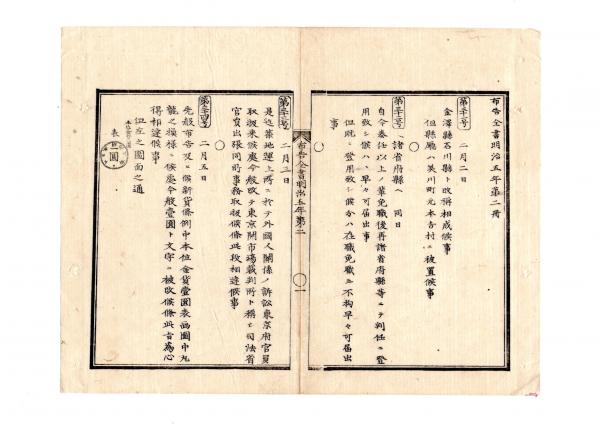 布告全書明治五年第二冊
第三十一号 二月二日
金澤縣石川縣ト改稱相成候事
但縣廳ハ美川町元本吉村ニ被置候事
第三十二号 諸省府縣ヘ 同日
自今奏任以上ノ輩免職後再諸省府縣等ニテ判任ニ登
用致シ候ハヽ早々可届出事
但既ニ登用致シ候分ハ在職免職ニ不拘早々可届出
事
布告全書明治五年第二
一
第三十三号 二月三日
是迄築地運上所ニ於テ外國人關係ノ訴訟東京府官員
取扱來候處今般改テ東京開市場裁判所ト稱シ司法省
官員出張同所事務取扱候條此段相達候事
第三十四号 二月五日
先般布告及ヒ候新貨條例中本位金貨壹圓表面圖中丸
龍之模樣ニ候處今般壹圓ト文字ニ被改候條此旨為心
得相達候事
但左之圖面之通
表
圓